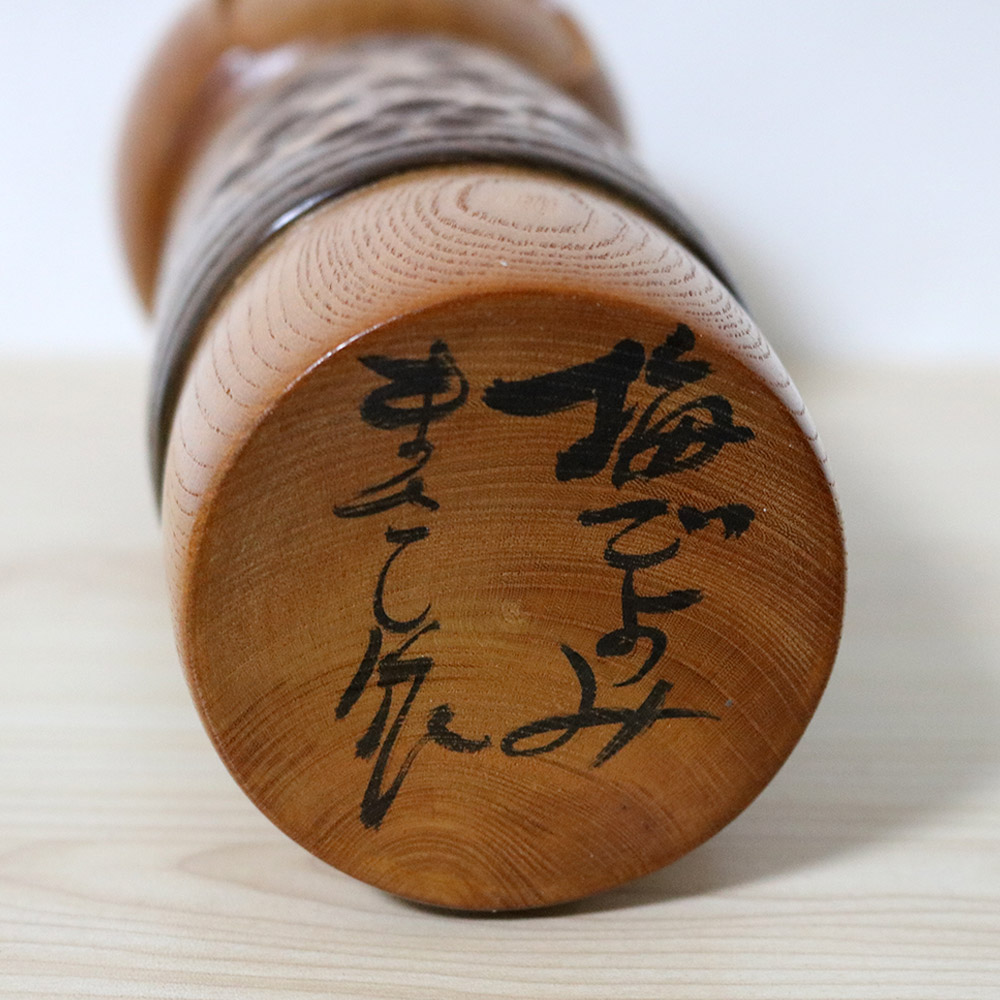 梅ごよみ
まさこ作